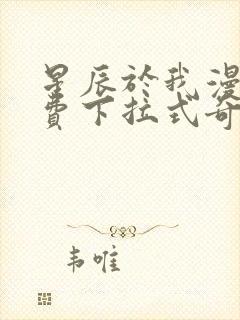 星辰於我漫
費下拉式奇
韦唯